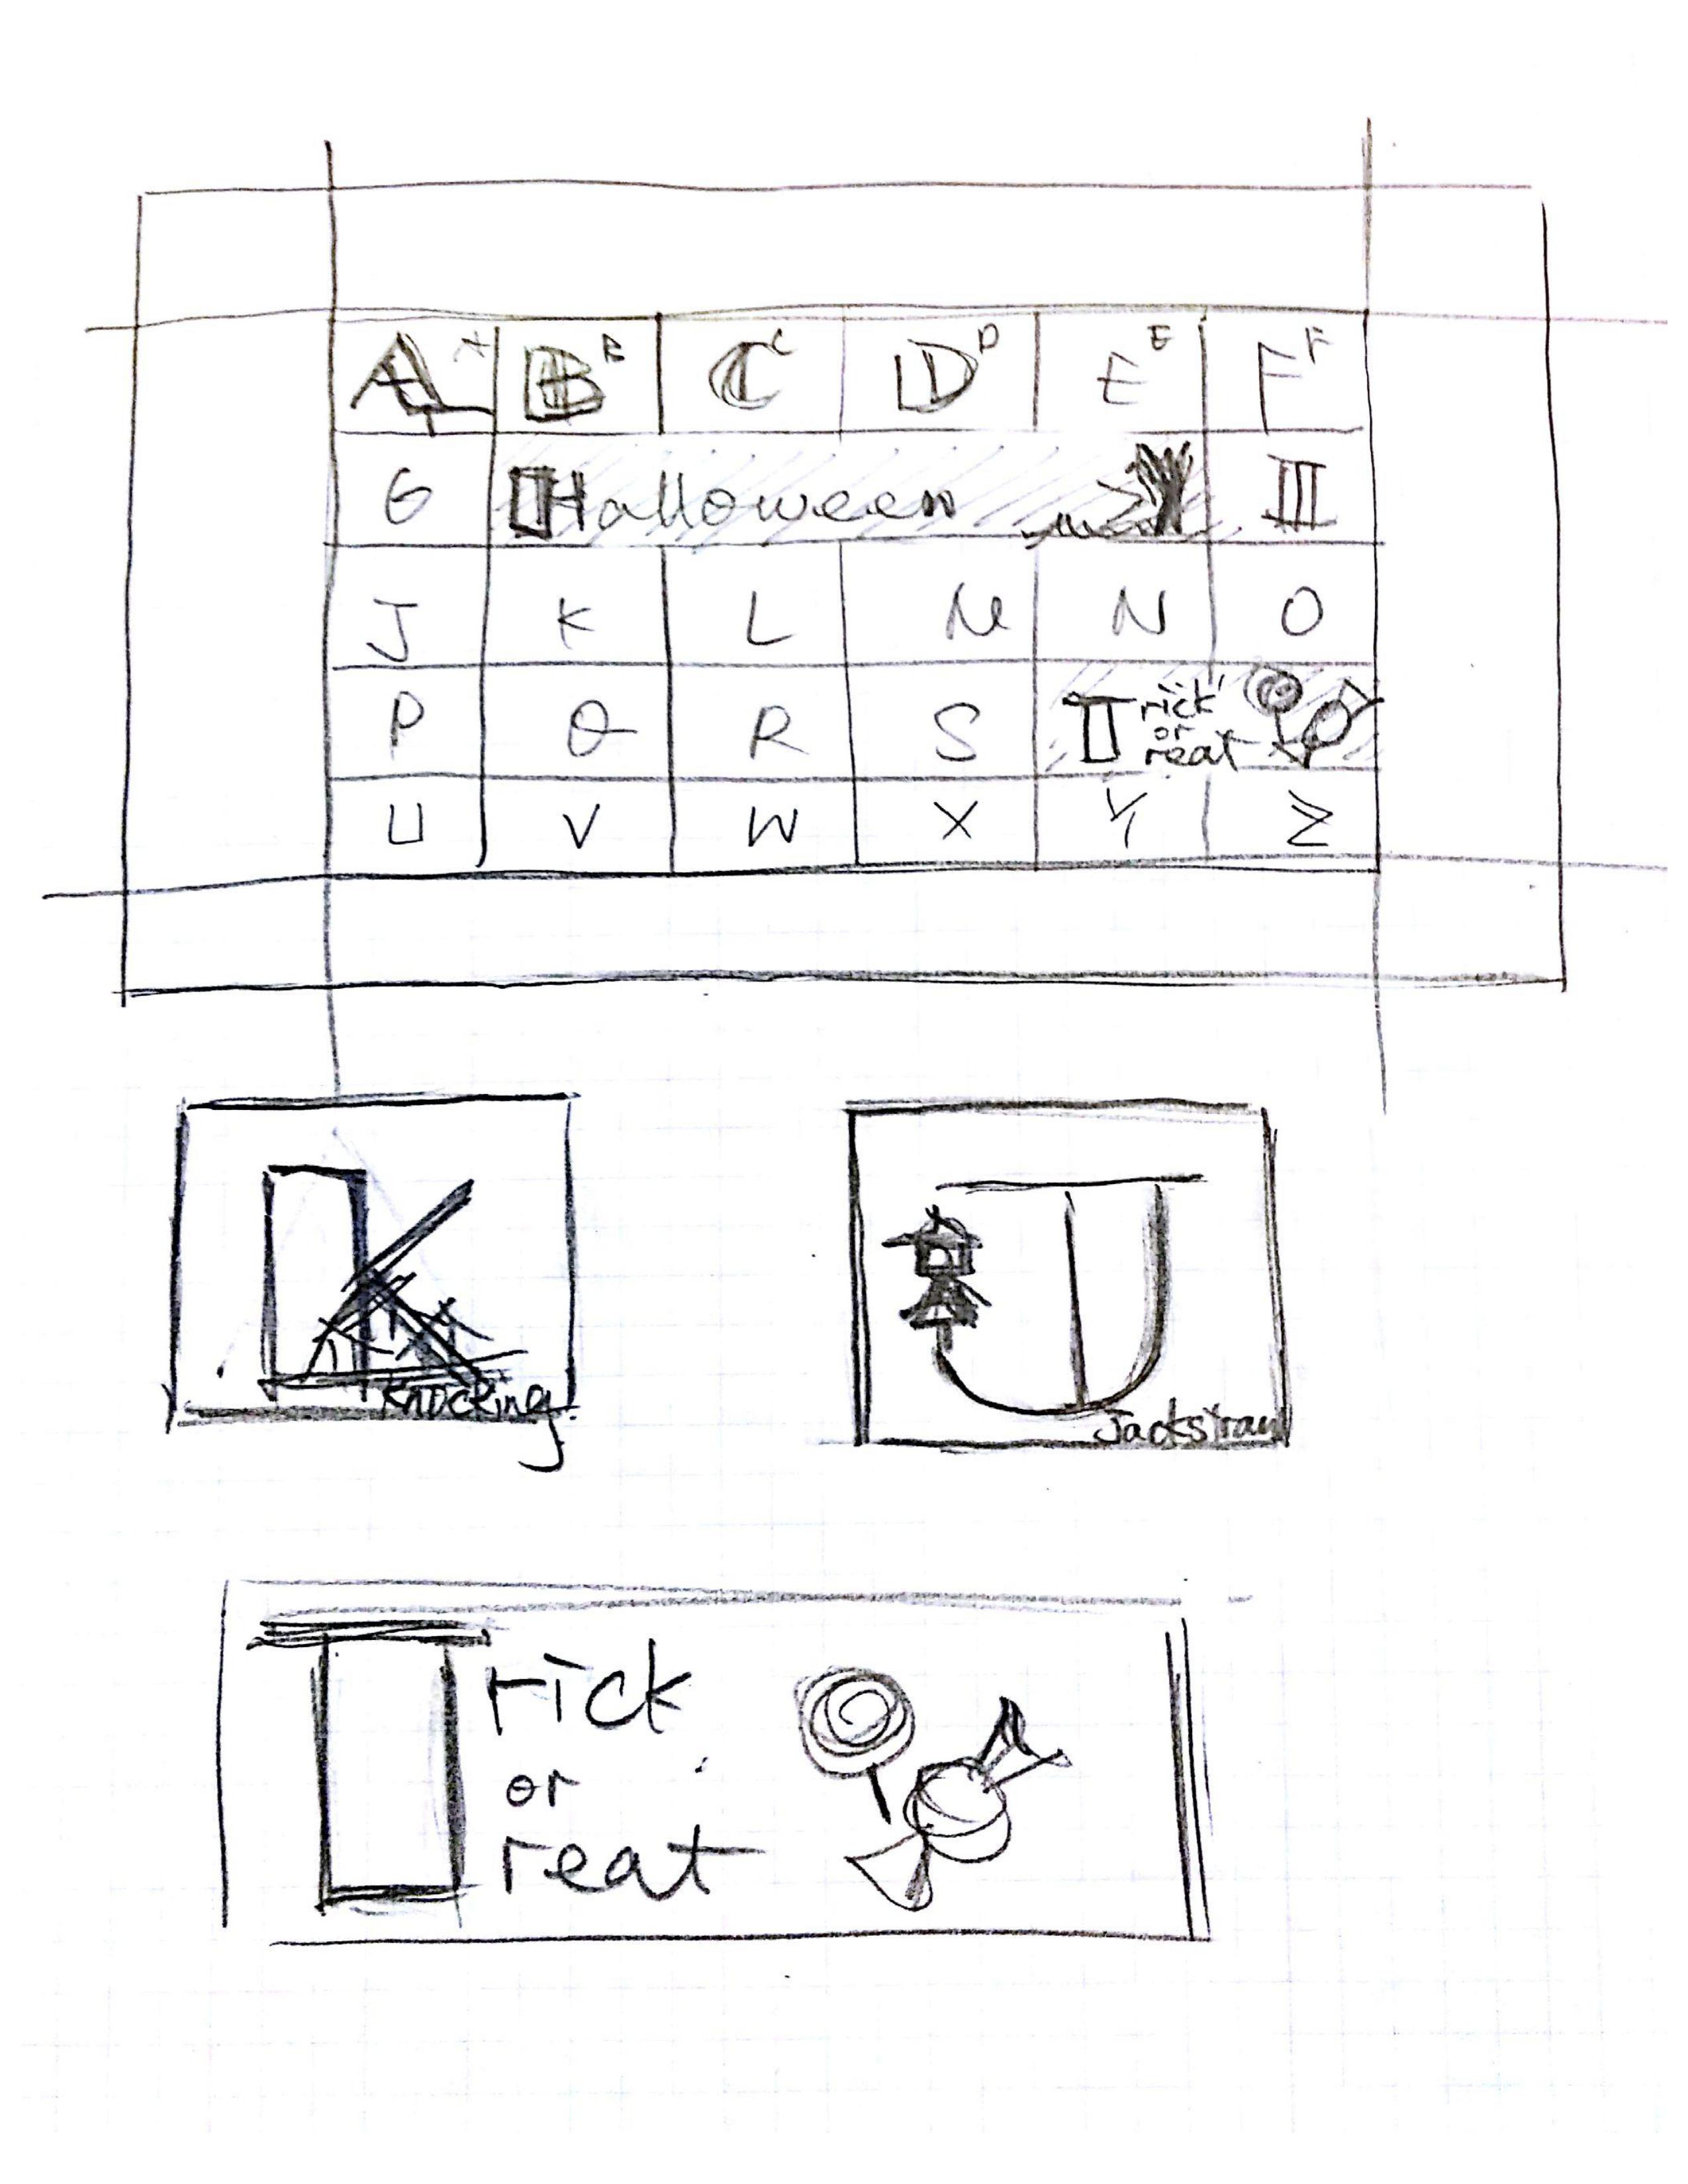 A A B B C C D D E E F F
G Halloween I
J K L M N O
P Q R S Trick
or
reat
U V W X Y Z
K
Knocking
J
Jackstraw
Trick
or
reat